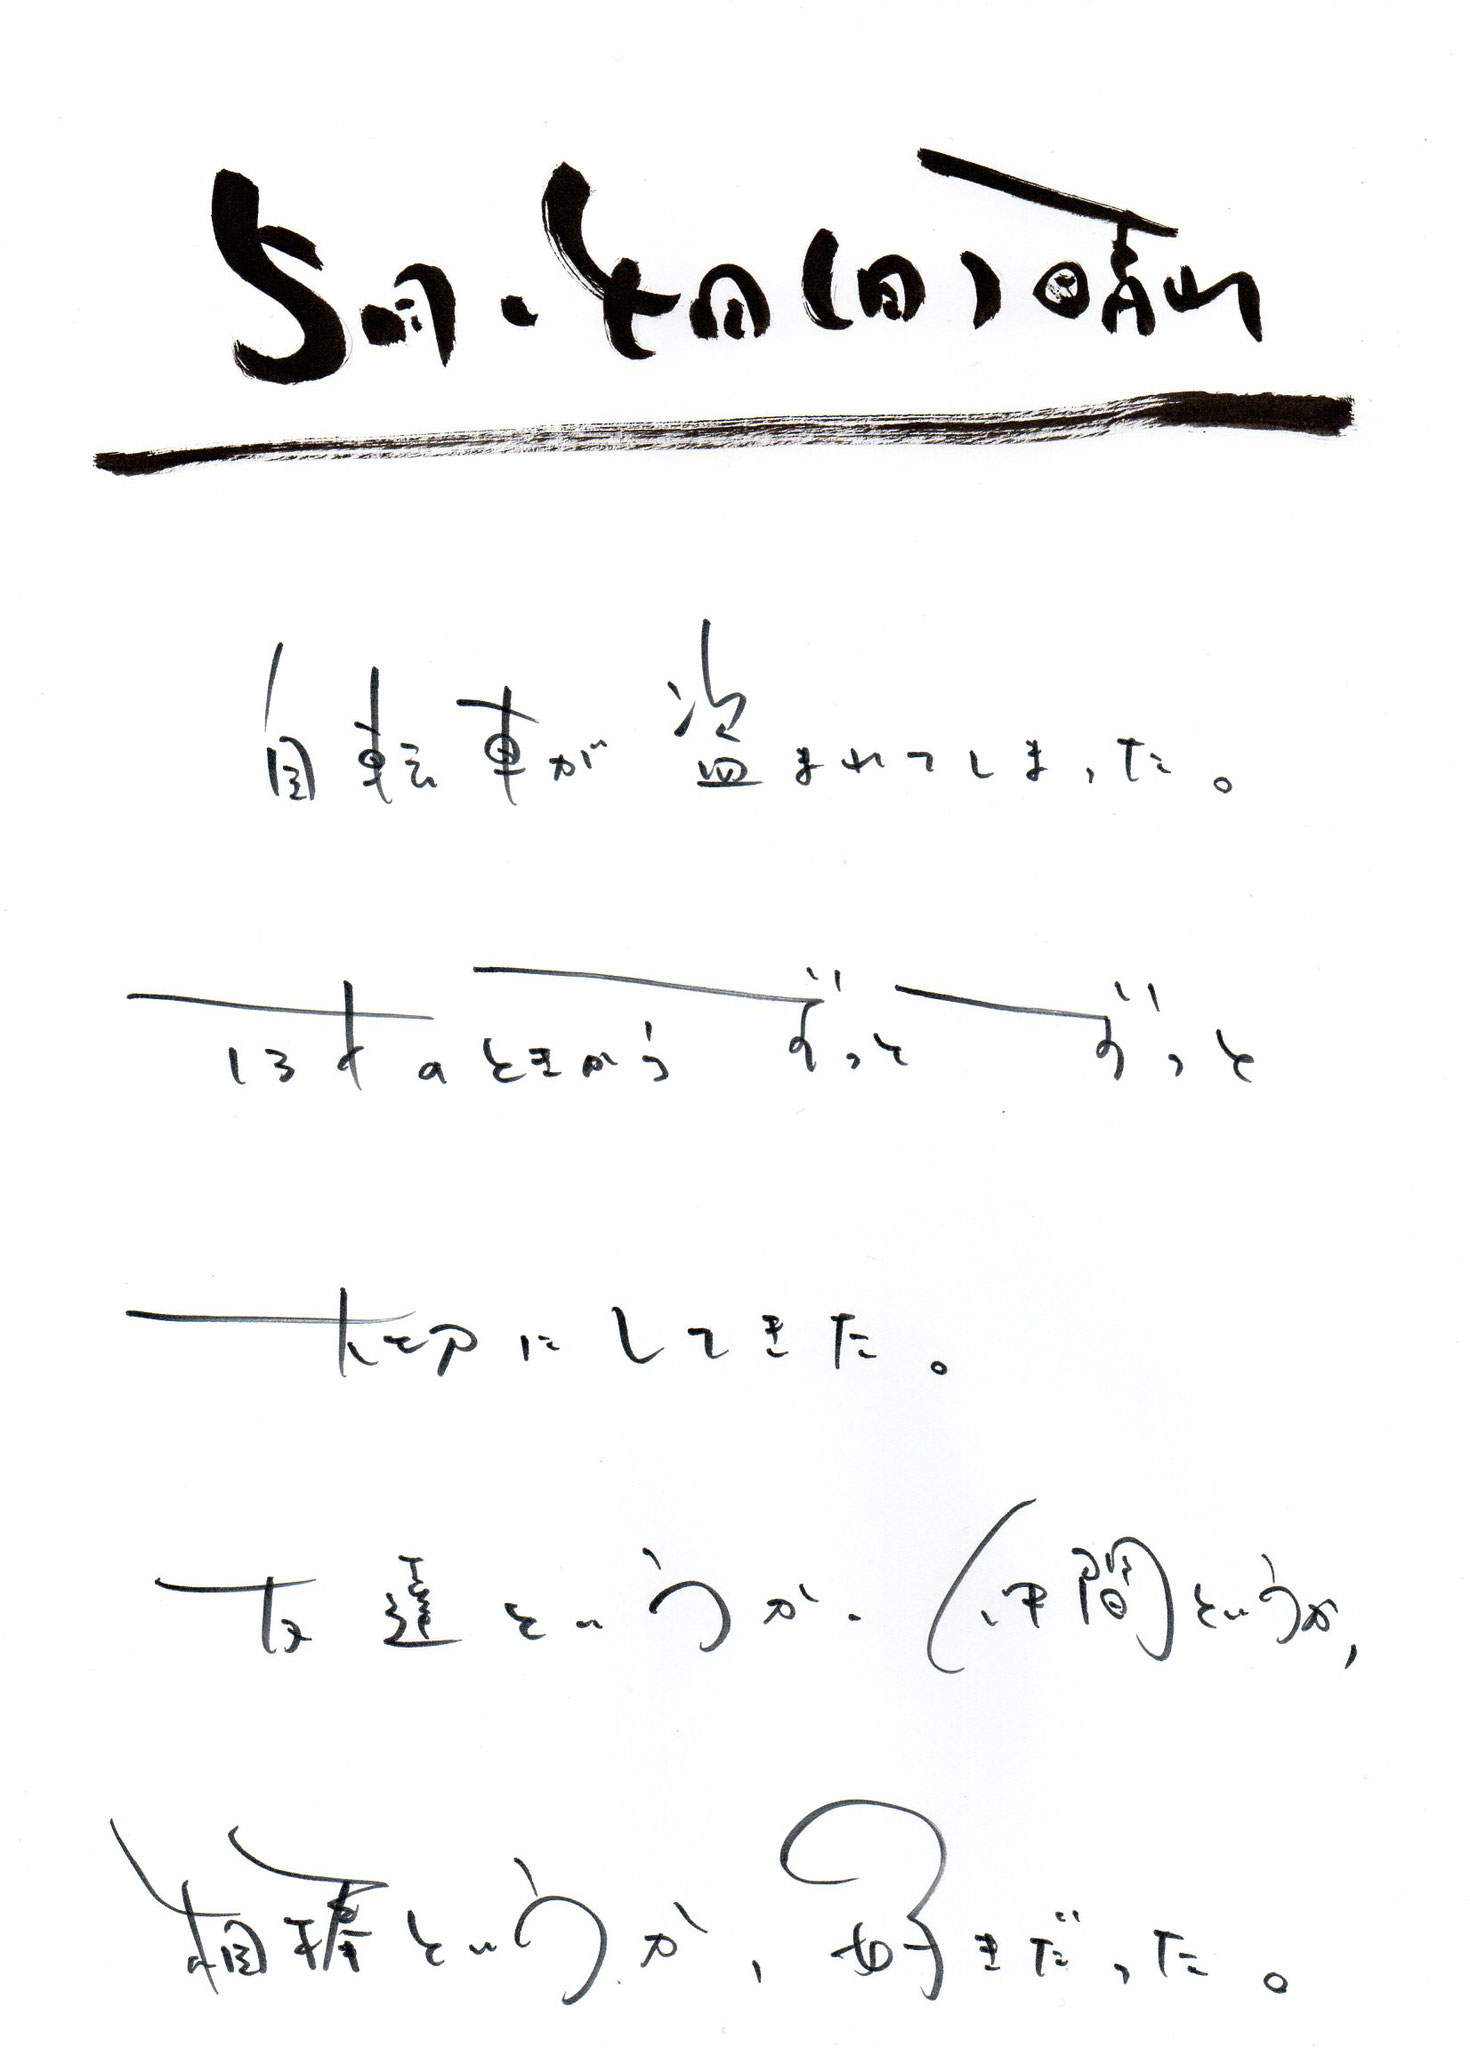 5月・七日(日)晴れ
自転車が盗まれてしまった。
13才のときからずっとずっと
大切にしてきた。
友達というか、仲間というか、
相棒というか、好きだった。